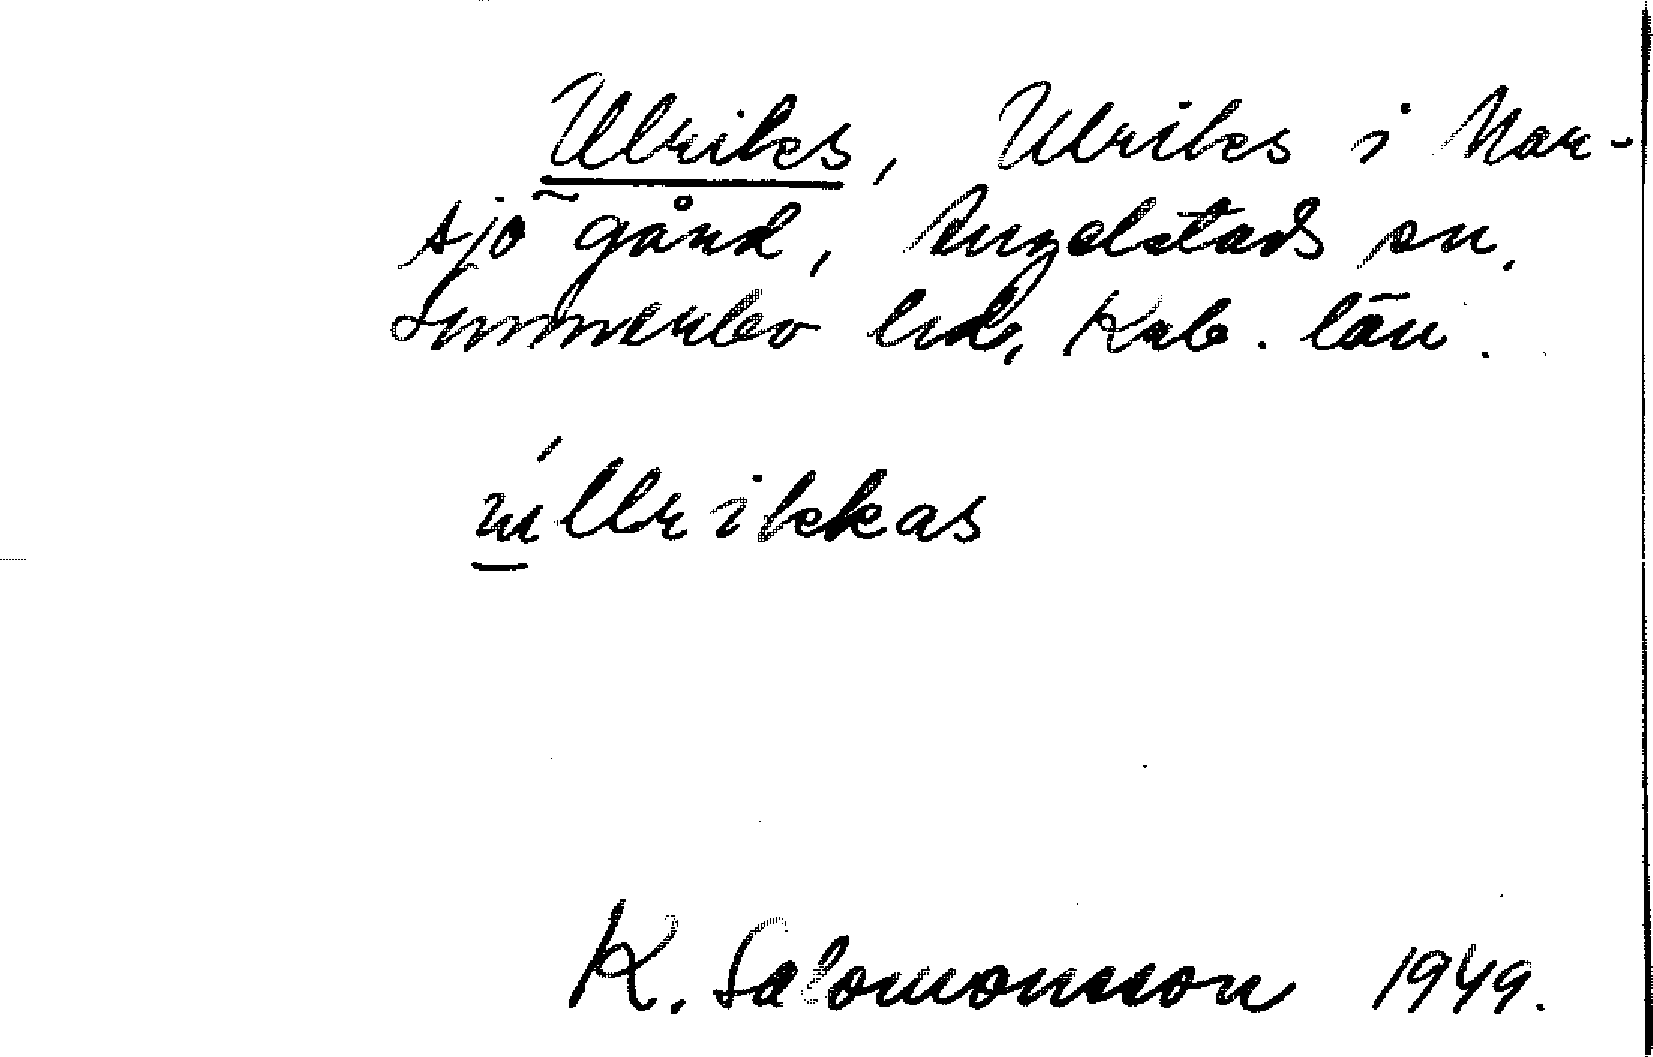 Ulriks, Ulriks i Mar-
sjö gård, Angelstads sn.
Sunnerbo hd, Krb. län.
úllrikkas
K. Salomonsson 1949.